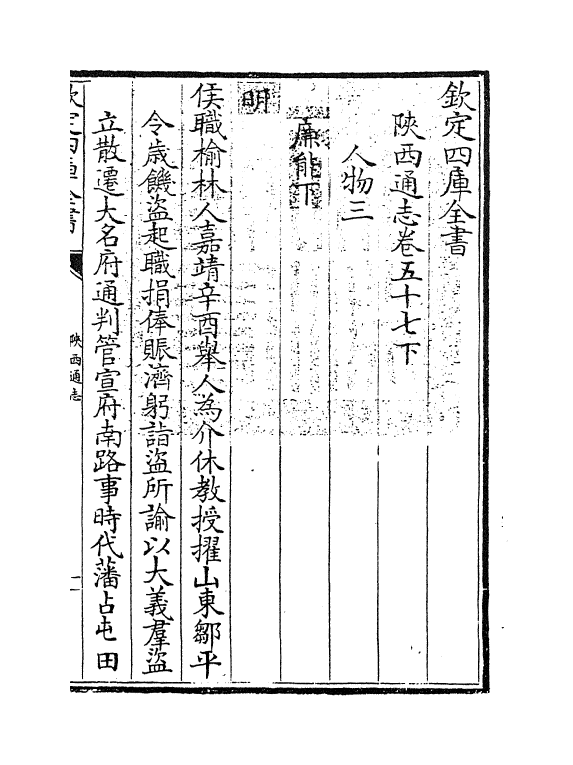 欽定四庫全書
陝西通志卷五十七下
人物三
廉能下
明
侯職榆林人嘉靖辛酉舉人為介休教授擢山東鄒平
令歲饑盜起職捐俸賑濟躬詣盜所諭以大義羣盜
立散遷大名府通判管宣府南路事時代藩占屯田
欽定四庫全書
陝西通志